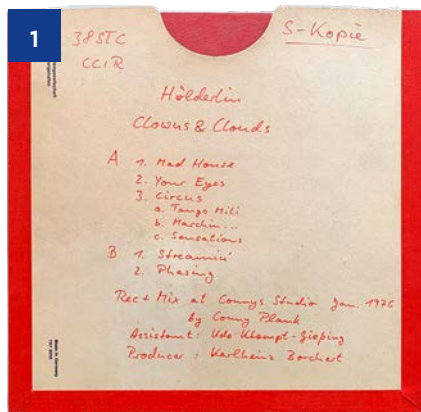 1
38 STC
CCIR
S-Kopie
Hölderlin
Clowns & Clouds
A 1. Mad House
2. Your Eyes
3. Circus
a. Tango Mili
b. Marchin...
c. Sensations
B 1. Streamin'
2. Phasing
Rec + Mix at Connys Studio Jan. 1976
by Conny Plank
Assistant: Udo Klempt-Gießing
Producer: Karlheinz Borchert
Made in Germany